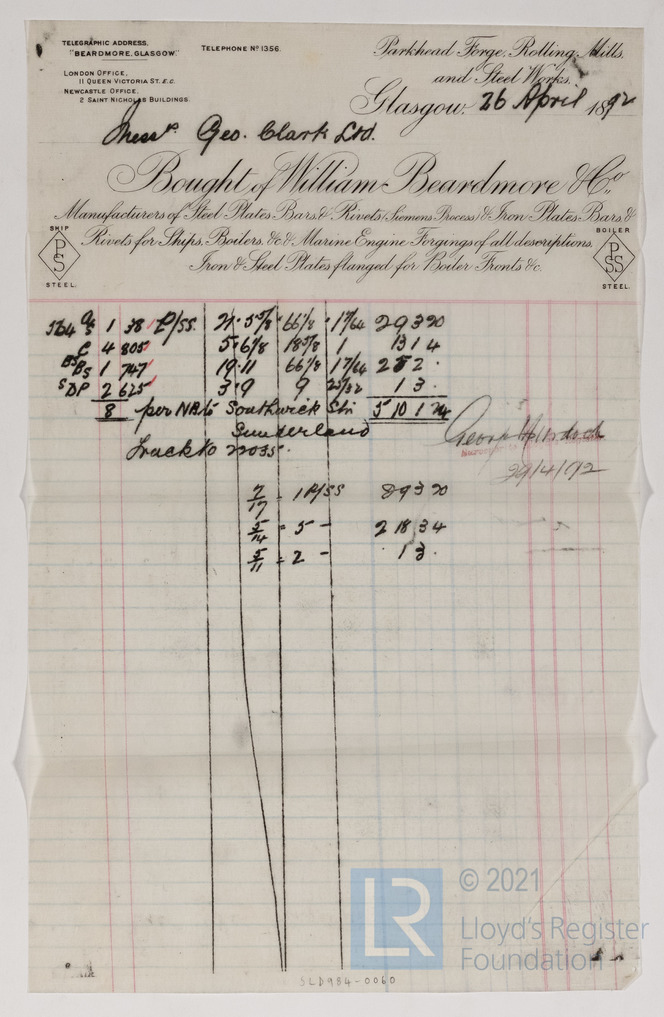 TELEGRAPHIC ADDRESS,
"BEARDMORE, GLASGOW."
TELEPHONE Nº 1356.
LONDON OFFICE,
11 QUEEN VICTORIA ST. E.C.
NEWCASTLE OFFICE,
2 SAINT NICHOLAS BUILDINGS.
Parkhead Forge, Rolling Mills,
and Steel Works,
Glasgow, 26 April 1892
Messrs Geo. Clark Ltd.
Bought of William Beardmore & Co.,
Manufacturers of Steel Plates, Bars, & Rivets (Siemens Process) & Iron Plates, Bars, &
Rivets for Ships, Boilers, &c & Marine Engine Forgings of all descriptions.
Iron & Steel Plates flanged for Boiler Fronts &c.
SHIP
PS
STEEL.
BOILER
PSS
STEEL.
1 38 P/SS 21·5 5/8 66 1/8 1 17/64 2 9 3 20
C 4 805 5·6 1/8 18 5/8 1 13 1 4
1 747 19·11 66 1/8 17/64 2 5 2 ·
SDP 2 625 3·9 9 25/32 1 3 ·
8 per NB to Southwick Stn 5 10 1 24
Sunderland
Truck No 22035.
29/4/92
7/17 = 1 P/SS 2 9 3 20
5/14 = 5 – 2 18 3 4
5/11 = 2 – · 1 3 ·
LR
© 2021
Lloyd's Register
Foundation
SLD984-0060